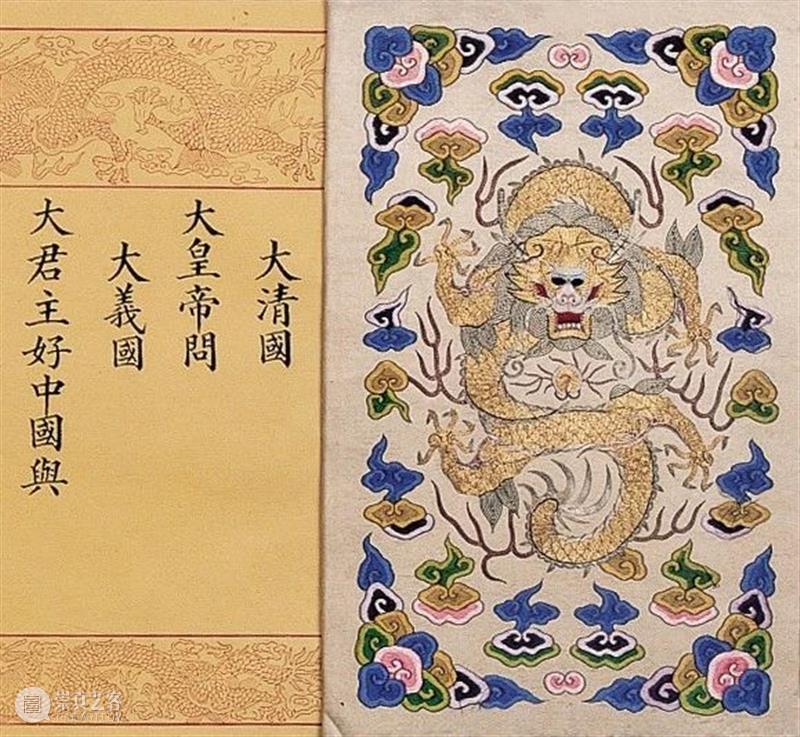 大清國
大皇帝問
大義國
大君主好中國與
崇真艺客